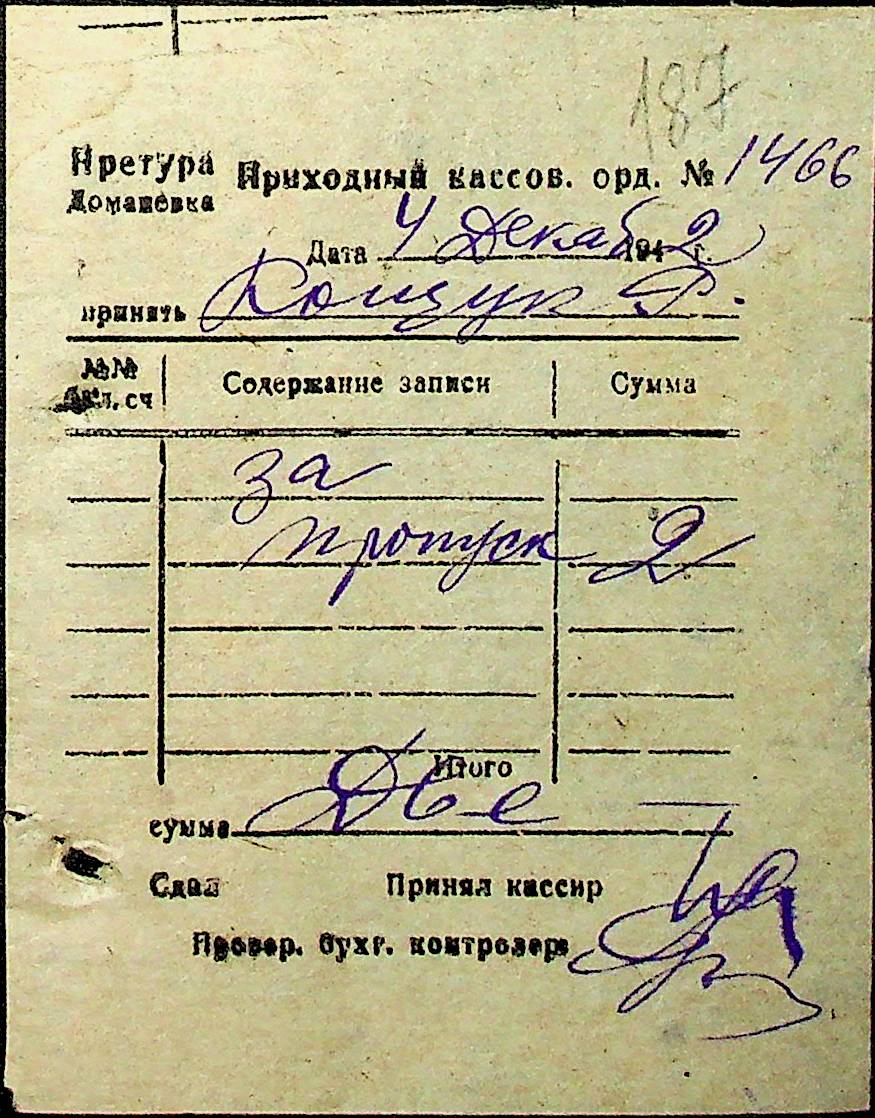 187
Претура Приходный кассов. орд. № 1466
Доманевка
Дата 4 Декаб 1942 г.
принять Кощук Ф.
№№ Содержание записи Сумма
бал. сч
за
пропуск 2
Итого
сумма Две
Сдал Принял кассир
Провер. бухг. контролер